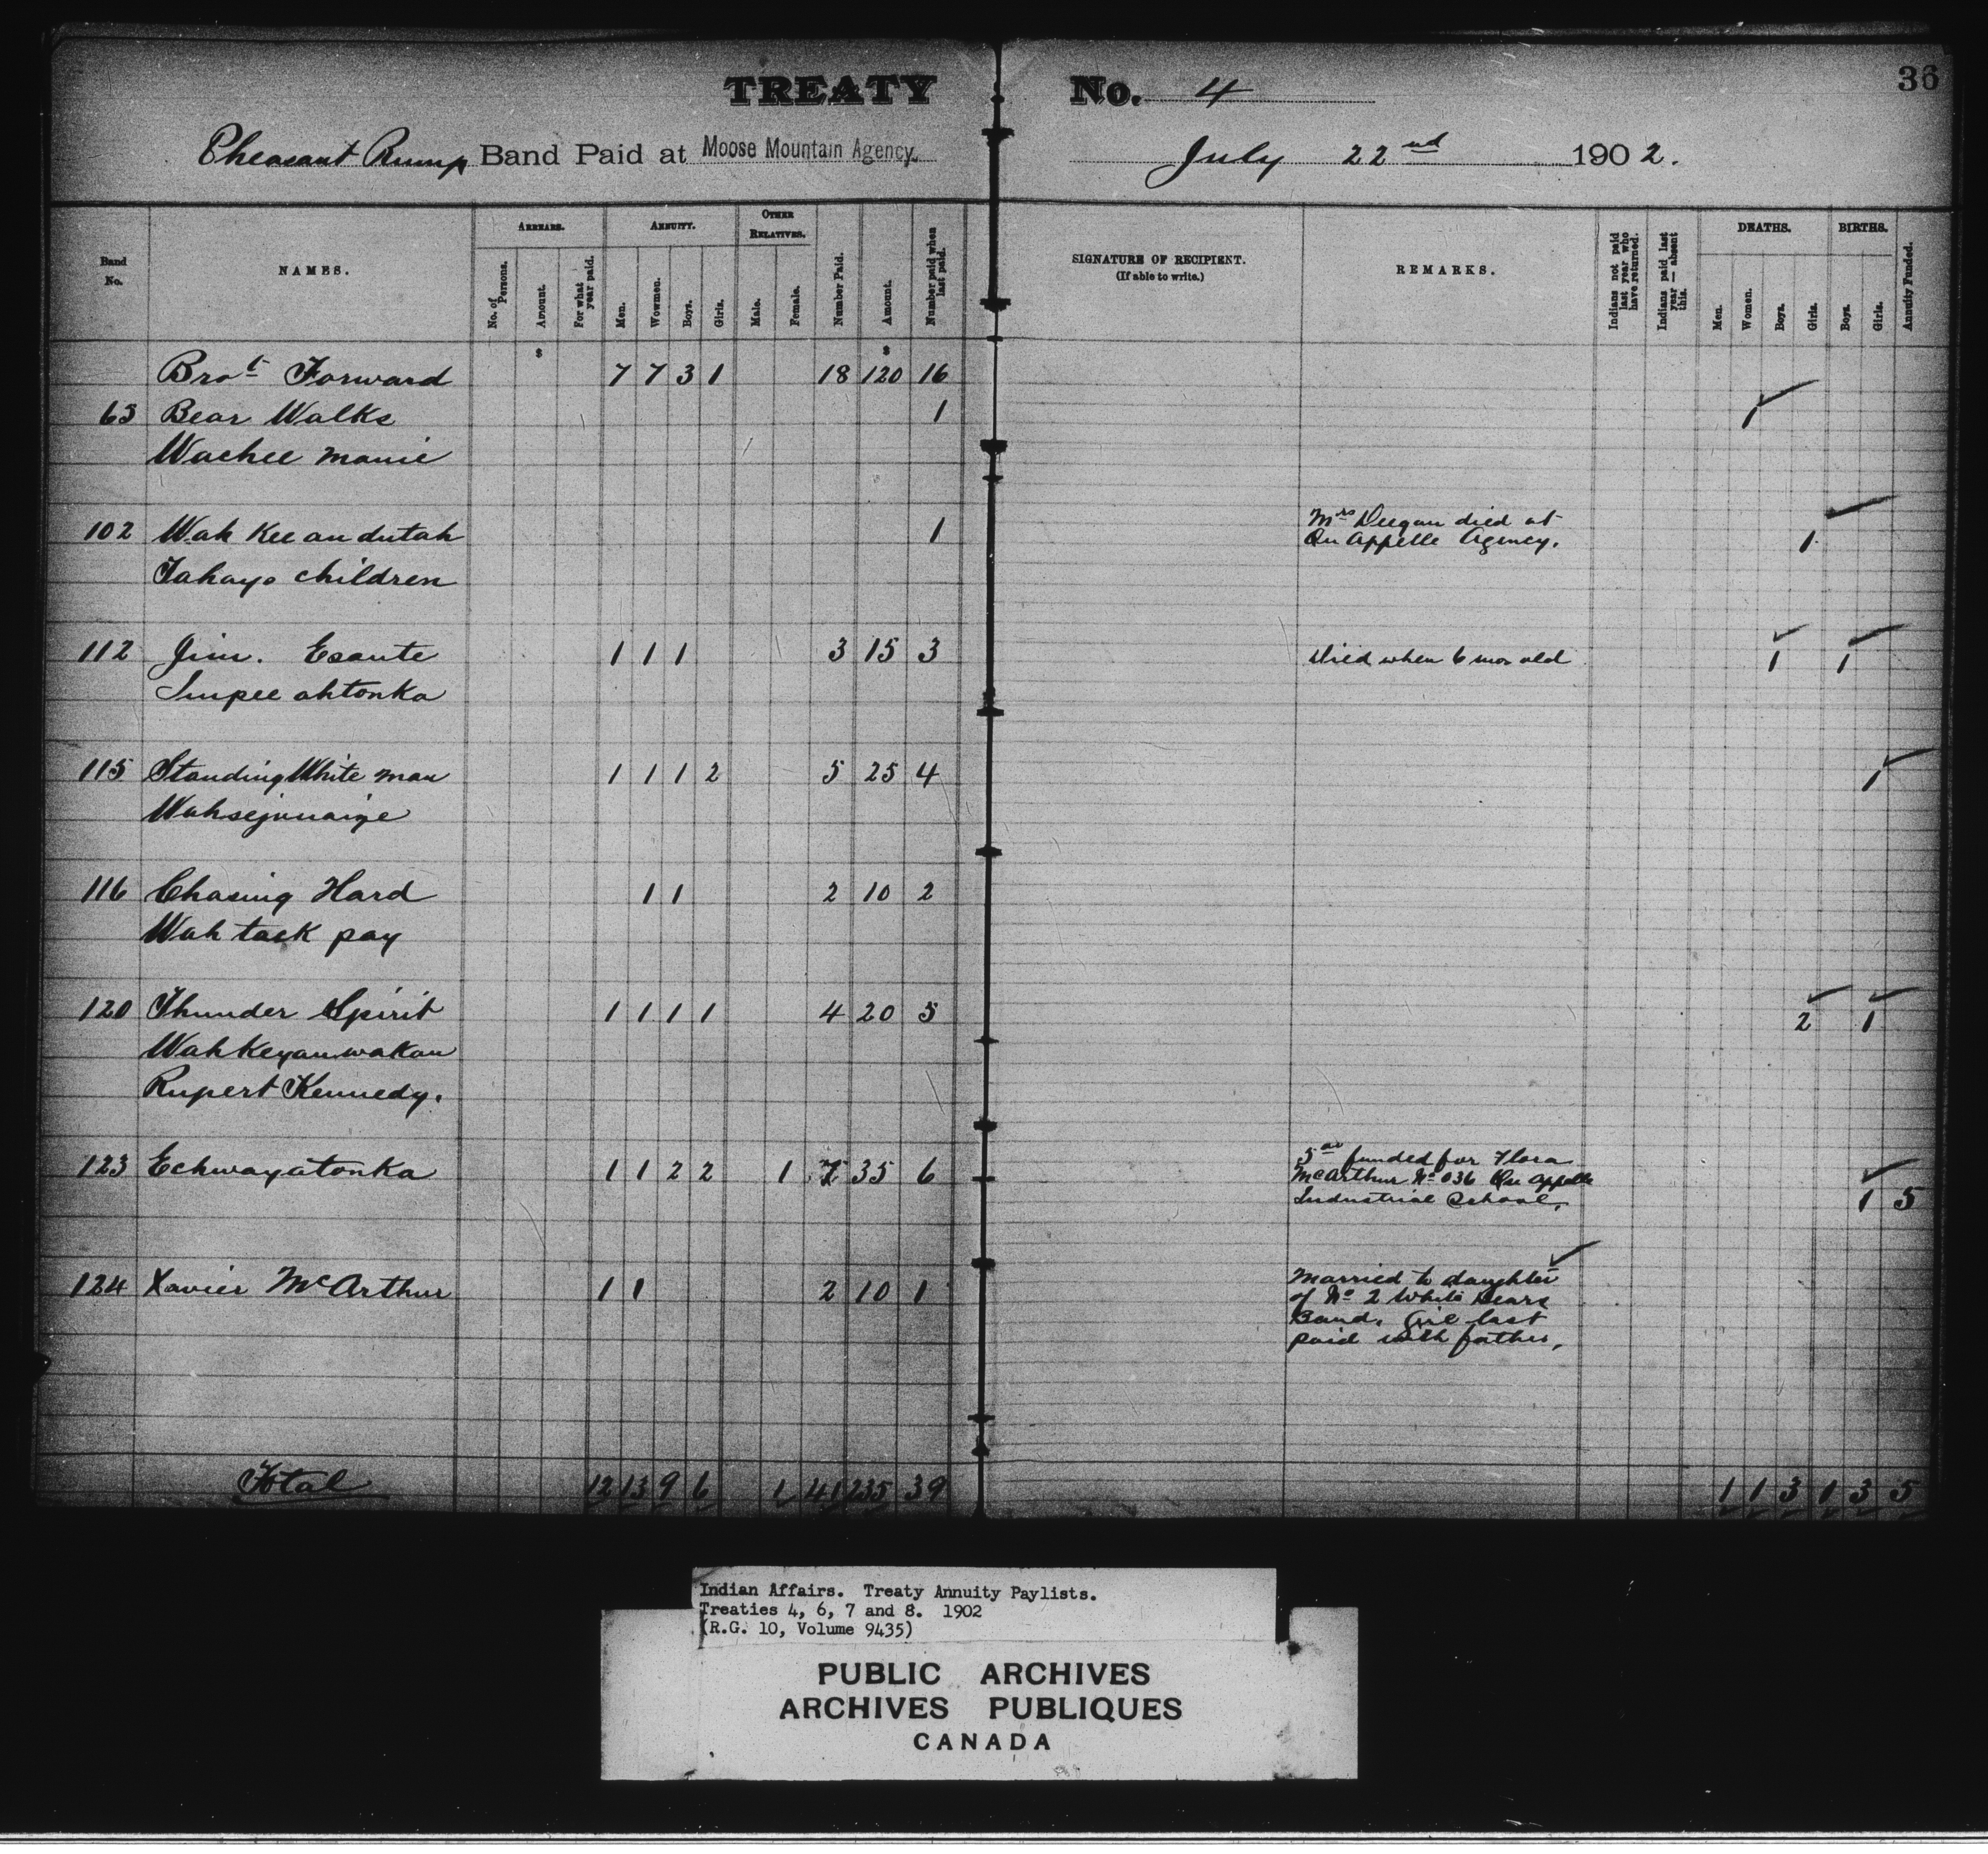 TREATY No. 4
36
Pheasant Rump Band Paid at Moose Mountain Agency. July 22nd 1902.
Band No. NAMES. ARREARS. No. of Persons. Amount. For what year paid. ANNUITY. Men. Women. Boys. Girls. OTHER RELATIVES. Male. Female. Number Paid. Amount. Number paid when last paid. SIGNATURE OF RECIPIENT. (If able to write.) REMARKS. Indians not paid last year who have returned. Indians paid last year — absent this. DEATHS. Men. Women. Boys. Girls. BIRTHS. Boys. Girls. Annuity Funded.
$ $
Brot Forward 7 7 3 1 18 120 16
63 Bear Walks 1 1
Wachee manie
102 Wah Kee an dutah 1 Mrs Deegan died at 1
Qu Appelle Agency.
Tahays children
112 Jim. Esante 1 1 1 3 15 3 Died when 6 mos old 1 1
Impee ahtonka
115 Standing White man 1 1 1 2 5 25 4 1
116 Chasing Hard 1 1 2 10 2
Wah tack pay
120 Thunder Spirit 1 1 1 1 4 20 5 2 1
Wahkeyan wakan
Rupert Kennedy.
123 Echwayatonka 1 1 2 2 1 7 35 6 5.00 funded for Flora
McArthur No 036 Qu Appelle
Industrial School. 1 5
124 Xavier McArthur 1 1 2 10 1 Married to daughter
of No 2 White Bears
Band. Girl last
paid with father.
Total 12 13 9 6 1 41 235 39 1 1 3 1 3 5
Indian Affairs. Treaty Annuity Paylists.
Treaties 4, 6, 7 and 8. 1902
(R.G. 10, Volume 9435)
PUBLIC ARCHIVES
ARCHIVES PUBLIQUES
CANADA